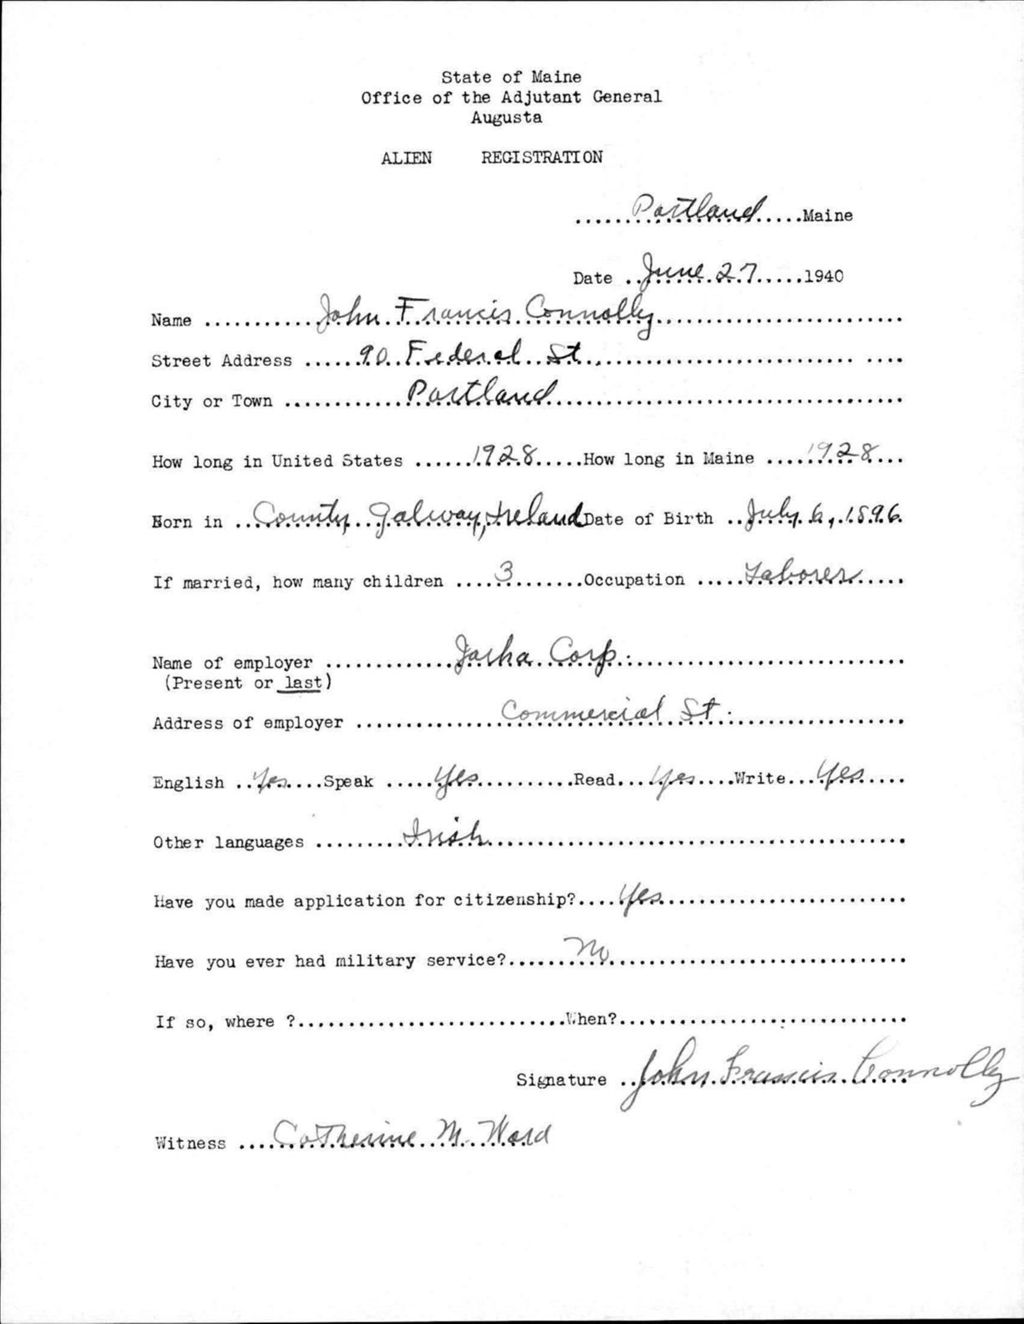 State of Maine
Office of the Adjutant General
Augusta
ALIEN REGISTRATION
......Portland.....Maine
Date ..June 27.....1940
Name ...........John Francis Connolly..........................
Street Address .....90 Federal St.............................. ....
City or Town ............Portland...................................
How long in United States ......1928.....How long in Maine ....1928...
Born in ..County Galway, Ireland Date of Birth ..July 6, 1896.
If married, how many children ....3.......Occupation .....Laborer.....
Name of employer ............. Corp...........................
(Present or last)
Address of employer ...............Commercial St..................
English ..Yes....Speak .....Yes..........Read...Yes....Write...Yes....
Other languages .........Irish..........................................
Have you made application for citizenship?....Yes.........................
Have you ever had military service?......No..............................
If so, where ?..........................When?............................
Signature ..John Francis Connolly
Witness ....Catherine M. Ward